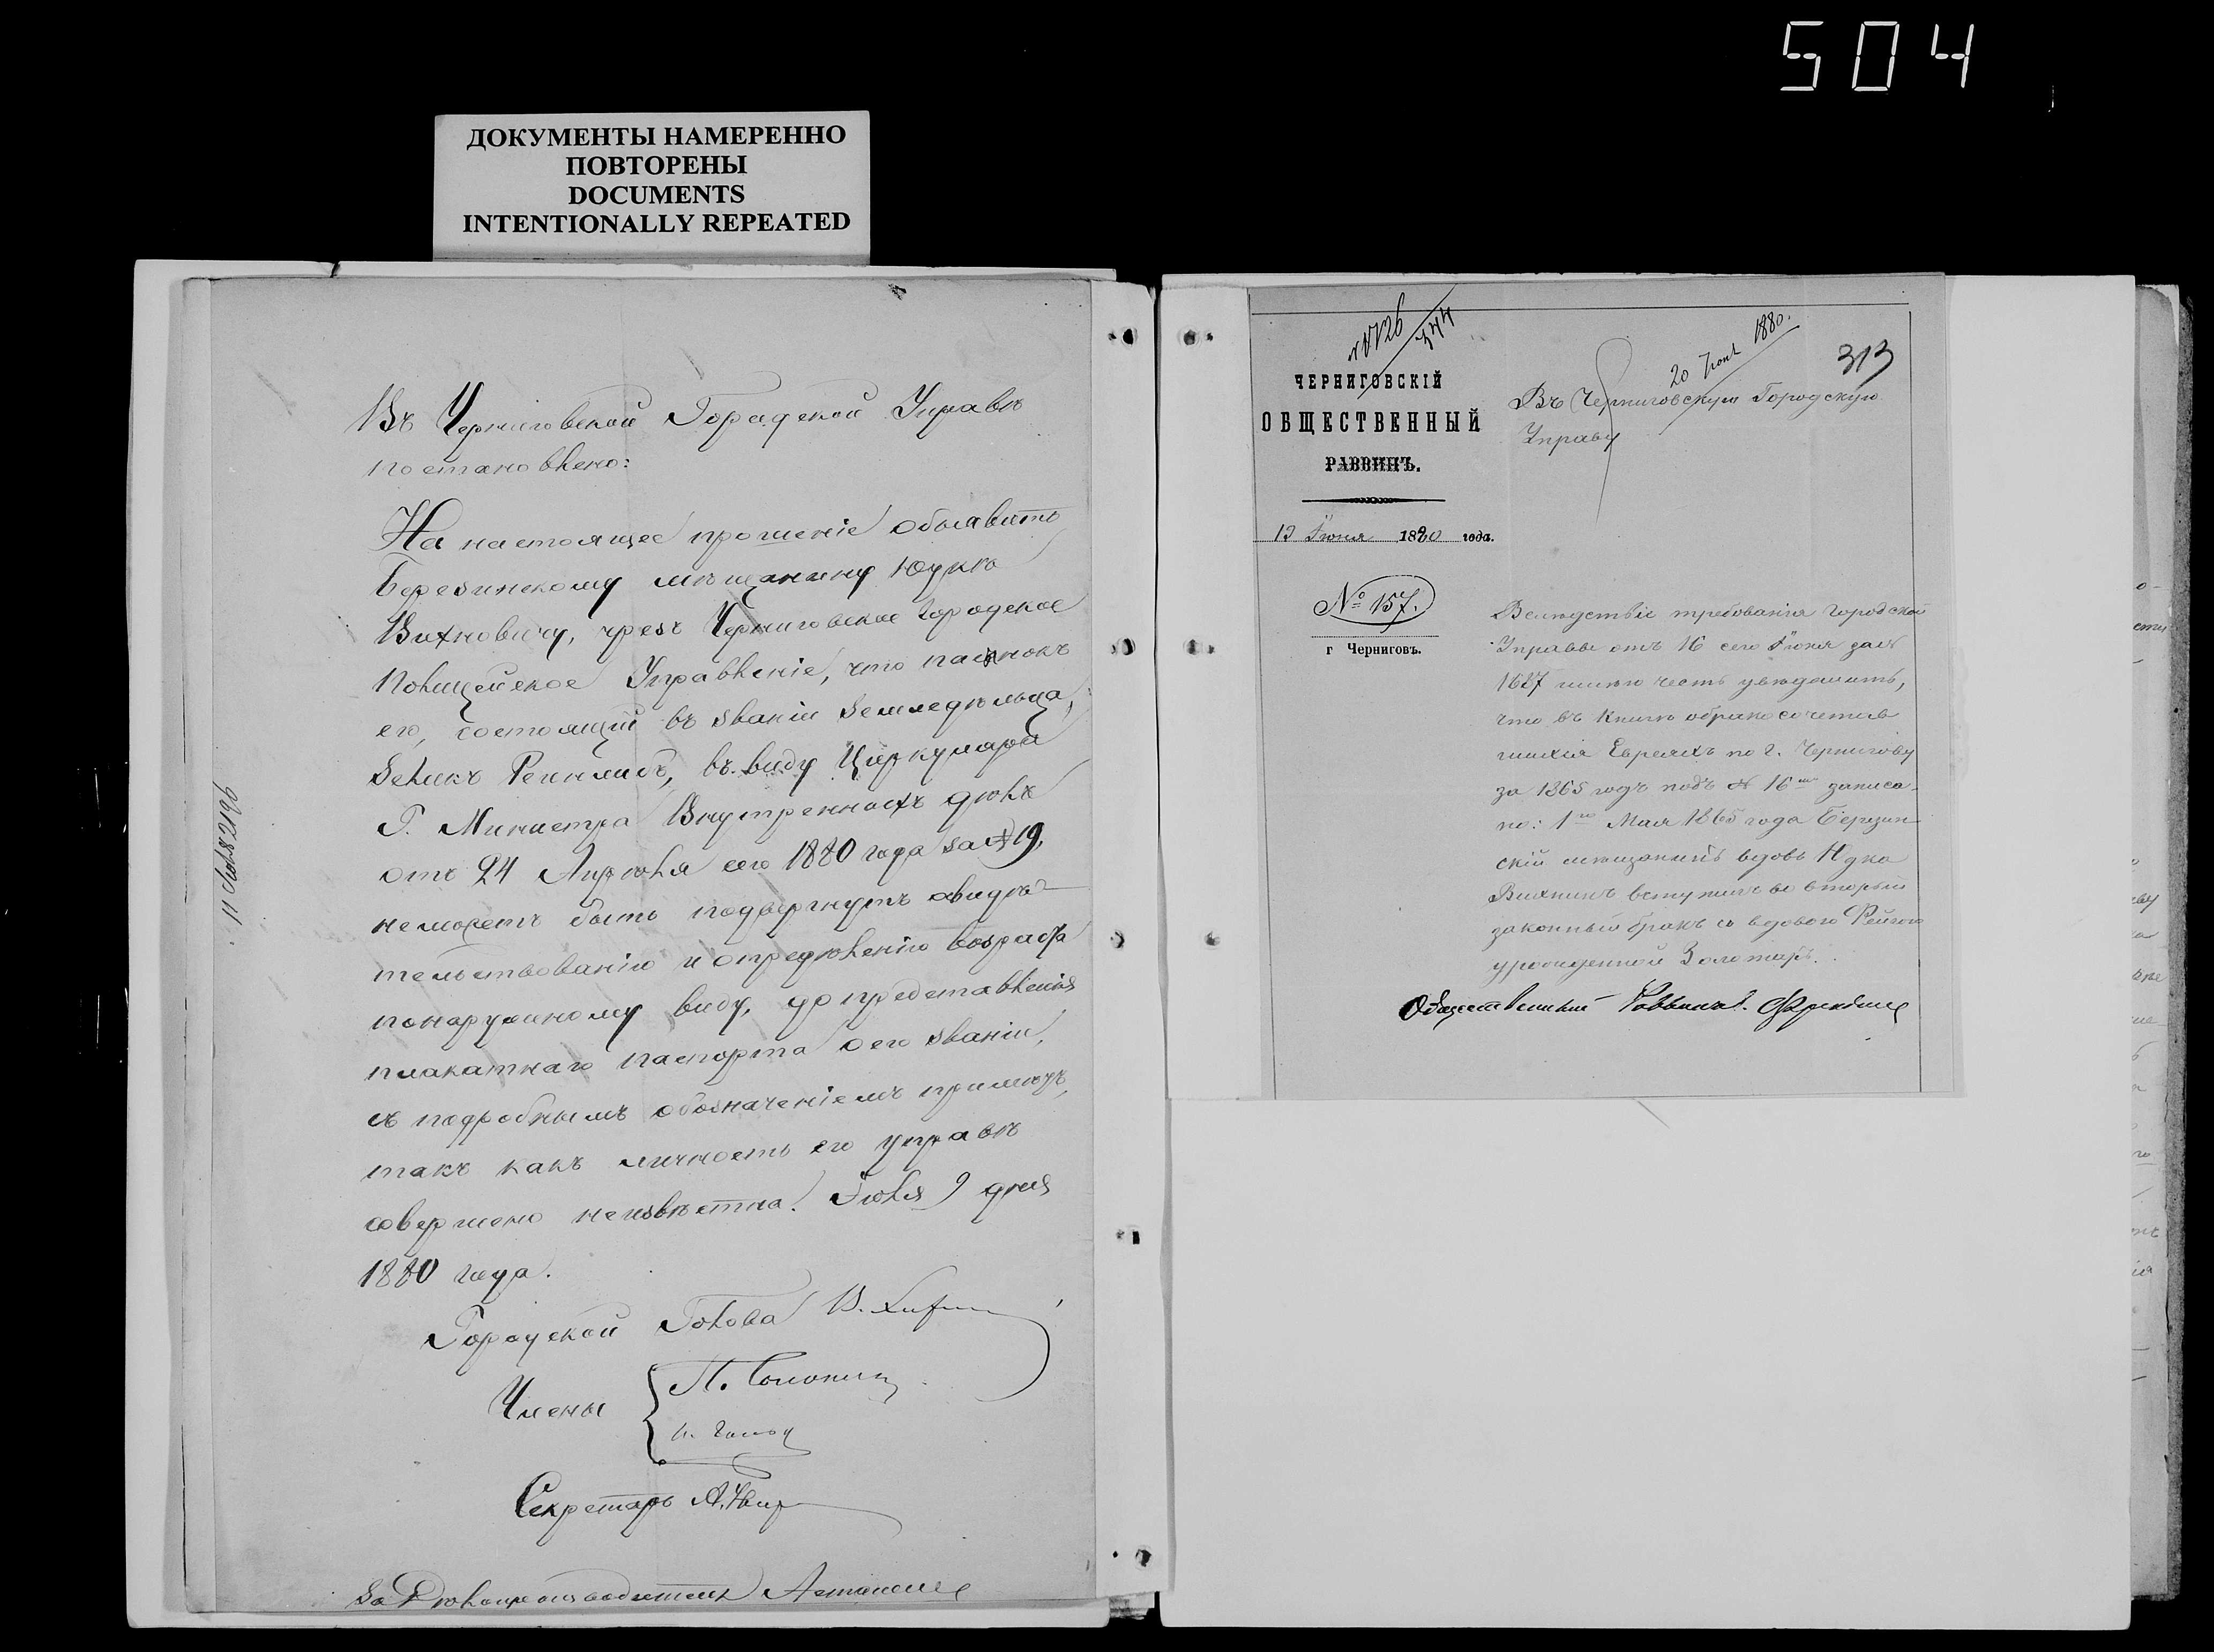 504
ДОКУМЕНТЫ НАМЕРЕННО
ПОВТОРЕНЫ
DOCUMENTS
INTENTIONALLY REPEATED
Въ Черниговской Городской Управѣ
постановлено:
На настоящее прошеніе объявить
Березинскому мѣщанину Юдкѣ
Вихновичу, чрезъ Черниговское Городское
Полицейское Управленіе, что пасынокъ
его, состоящій въ званіи земледѣльца,
Зеликъ въ виду Циркуляра
Г. Министра Внутреннихъ дѣлъ
отъ 24 Апрѣля сего 1880 года за № 19,
неможетъ быть подвергнутъ свидѣ-
тельствованію и опредѣленію возраста
понаружному виду, до представленія
плакатнаго паспорта о его званіи,
съ подробнымъ обозначеніемъ примѣтъ,
такъ какъ личность его управѣ
совершено неизвѣстна. Іюля 9 дня
1880 года.
Городской Голова В.
Члены
Секретарь А.
За Дѣлопроизводителя
11 Июля 2196
313
20 Іюня 1880.
ЧЕРНИГОВСКІЙ
ОБЩЕСТВЕННЫЙ
РАВВИНЪ.
19 Іюня 1880 года.
№ 157.
г Черниговъ.
Въ Черниговскую Городскую
Управу
Вслѣдствіе требованія Городской
Управы отъ 16 сего Іюня за №
1627 имѣю честь увѣдомить,
что въ книгѣ о бракосочетав
шихся Евреяхъ по г. Чернигову
за 1865 годъ подъ № 16 записа-
но: 1го Мая 1865 года Березин-
скій мѣщанинъ вдовъ Юдка
Вихнинъ вступилъ во вторый
законный бракъ со вдовою Фейгою
урожденной Золотарь.
Общественный Раввинъ